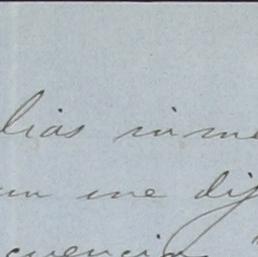 lias inme
un me dij
cuencia